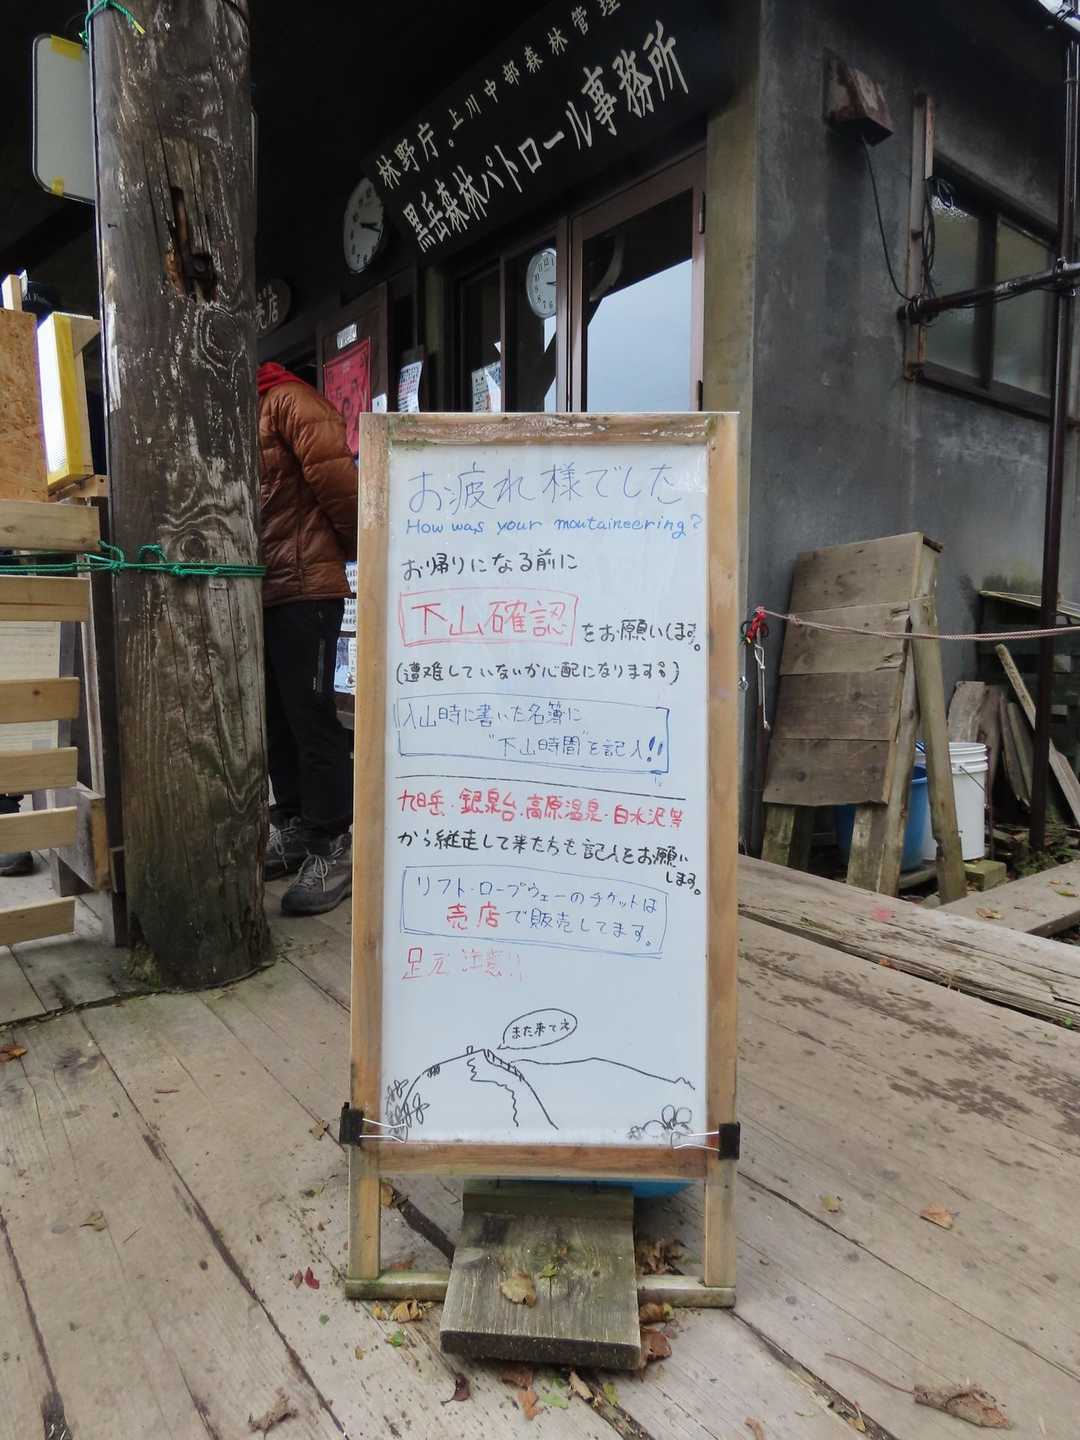 林野庁。上川中部森林管理
黒岳森林パトロール事務所
売店
お疲れ様でした
How was your moutaineering?
お帰りになる前に
下山確認をお願いします。
(遭難していないか心配になります。)
入山時に書いた名簿に
"下山時間"を記入!!
九日岳・銀泉台・高原温泉・白水沢等
から縦走して来た方も記入をお願い
します。
リフト・ロープウェーのチケットは
売店で販売してます。
足元注意!!
また来てえ